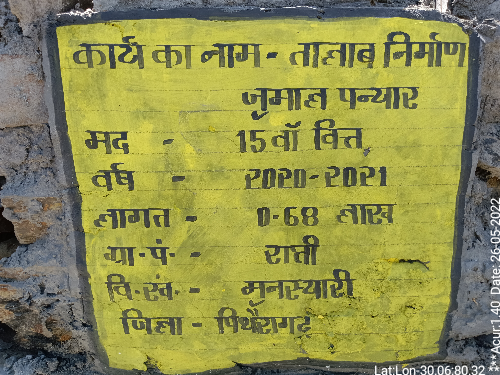 कार्य का नाम - तालाब निर्माण
जुमाल पन्यार
मद - 15 वाँ वित्त
वर्ष - 2020-2021
लागत - 0-68 लाख
ग्रा.पं. - राती
वि.खं. - मुनस्यारी
जिला - पिथौरागढ
Lat:Lon-30.06:80.32
Date: 26-05-2022